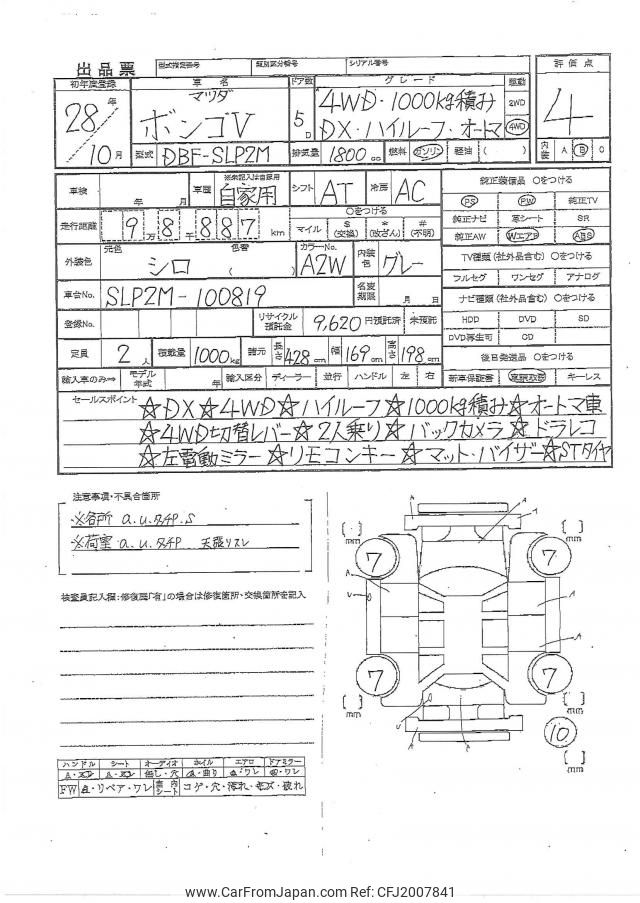 出品票 型式指定番号 類別区分番号 シリアル番号
初年度登録 車名 ドア数 グレード 駆動 評価点
28年 マツダ 5D 4WD・1000kg積み 2WD 4
10月 ボンゴV DX・ハイルーフ・オートマ 4WD
型式 DBF-SLP2M 排気量 1800cc 燃料 ガソリン 軽油 ( ) 内装 A B C
車検 年 月 車歴 ※未記入は自家用 自家用 シフト AT 冷房 AC 純正装備品 ○をつける
PS PW 純正TV
走行距離 9万8千887km ○をつける マイル $(交換) *(改ざん) #(不明)
純正ナビ 革シート SR
純正AW WエアB ABS
外装色 元色 シロ 色替 ( ) カラーNo. A2W 内装色 グレー
TV種類(社外品含む) ○をつける
フルセグ ワンセグ アナログ
車台No. SLP2M-100819 名変期限 月 日
ナビ種類(社外品含む) ○をつける
登録No. リサイクル預託金 9,620円預託済 未預託
HDD DVD SD
DVD再生可 CD
定員 2人 積載量 1000kg 諸元 長さ428cm 幅169cm 高さ198cm
後日発送品 ○をつける
輸入車のみ⇒ モデル年式 年 輸入区分 ディーラー 並行 ハンドル 左 右
新車保証書 取扱説明書 キーレス
セールスポイント ☆DX☆4WD☆ハイルーフ☆1000kg積み☆オートマ車
☆4WD切替レバー☆2人乗り☆バックカメラ☆ドラレコ
☆左電動ミラー☆リモコンキー☆マット・バイザー☆STタイヤ
注意事項・不具合箇所
※各所 a.u.タチP.S
※荷室 a.u.タチP 天張リスレ
検査員記入欄:修復歴「有」の場合は修復箇所・交換箇所を記入
[ ] mm 7 7 [ ] mm
A A A A U A
[ ] mm 7 7 [ ] mm
U A 10
[ ] mm
ハンドル シート オーディオ ホイル エアロ ドアミラー
FW a・リペア・ワレ 車内シート コゲ・穴・汚れ・キズ・破れ
www.CarFromJapan.com Ref: CFJ2007841